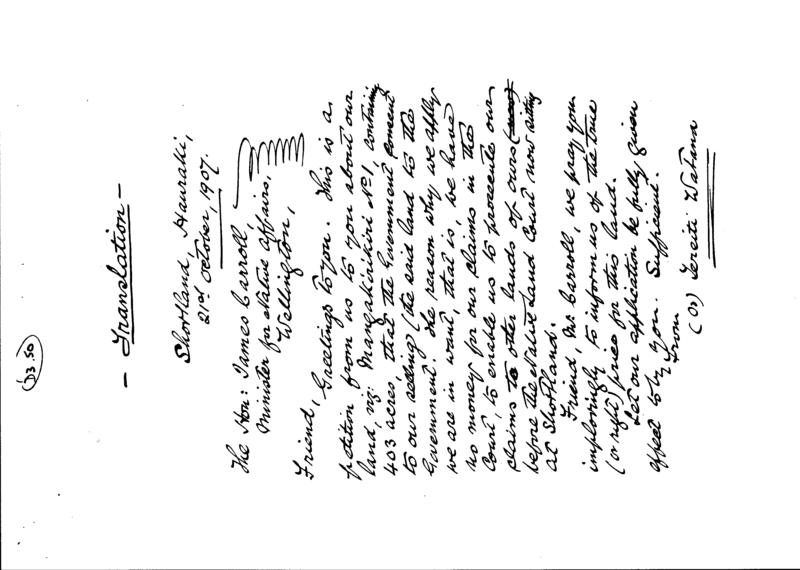 D3.50
- Translation -
Shortland, Hauraki,
21st October, 1907.
The Hon: James Carroll,
Minister for Native Affairs,
Wellington,
Friend, Greetings to you. This is a
petition from us to you about our
land, viz: Mangakirikiri No 1, containing
403 acres, that the Government consent
to our selling (the said land to the
Government. The reason why we apply
we are in want, that is, we have
no money for our claims in the
Court, to enable us to prosecute our
claims to other lands of ours
before the Native Land Court now sitting
at Shortland.
Friend, Mr. Carroll, we pray you
imploringly to inform us of the true
(or right) price for this land.
Let our application be fully given
effect to by you. Sufficient.
From
(Or) Tereiti Watana